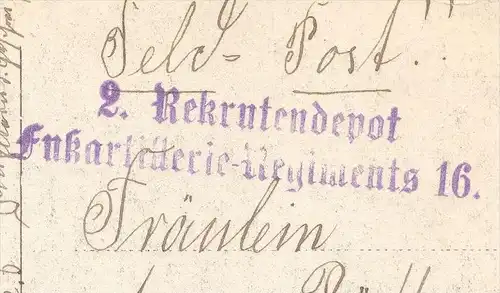 Feld- Post!!
2. Rekrutendepot
Fußartillerie-Regiments 16.
Fräulein